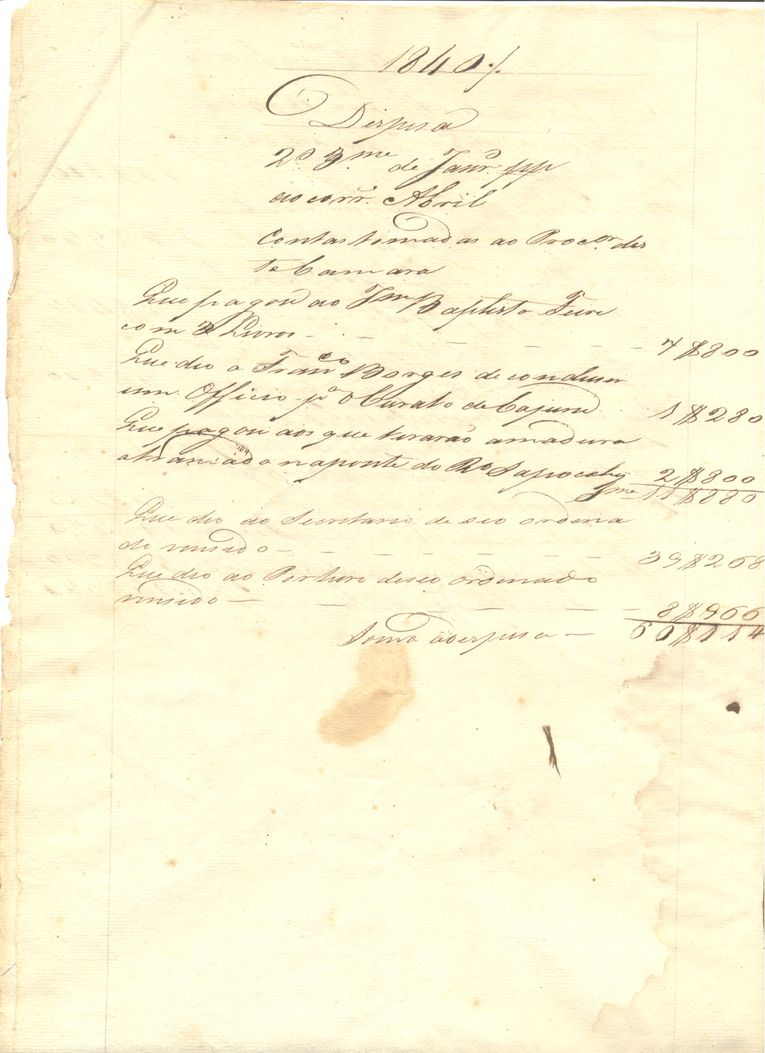 1840 /.
Despesa
2º 3.me de Janr.º pp
ao corr.e Abril
Contas tomadas ao Procor. des
ta Camara
Que pagou ao Jm Baptista
com 3 Livros - - - - 7$800
Que deo a Franco Borges de conduzir
um Officio pª o Curato de Cajurú 1$280
Que pagou aos que tirarão a madura
atrancado na ponte do Ro Sapocahy 2$800
11$880
Que deo ao Secretario de seo ordena
do vensido - - - - 39$268
Que deo ao Porteiro de seo ordenado
vensido - - - - 8$966
Soma a despesa - 60$114